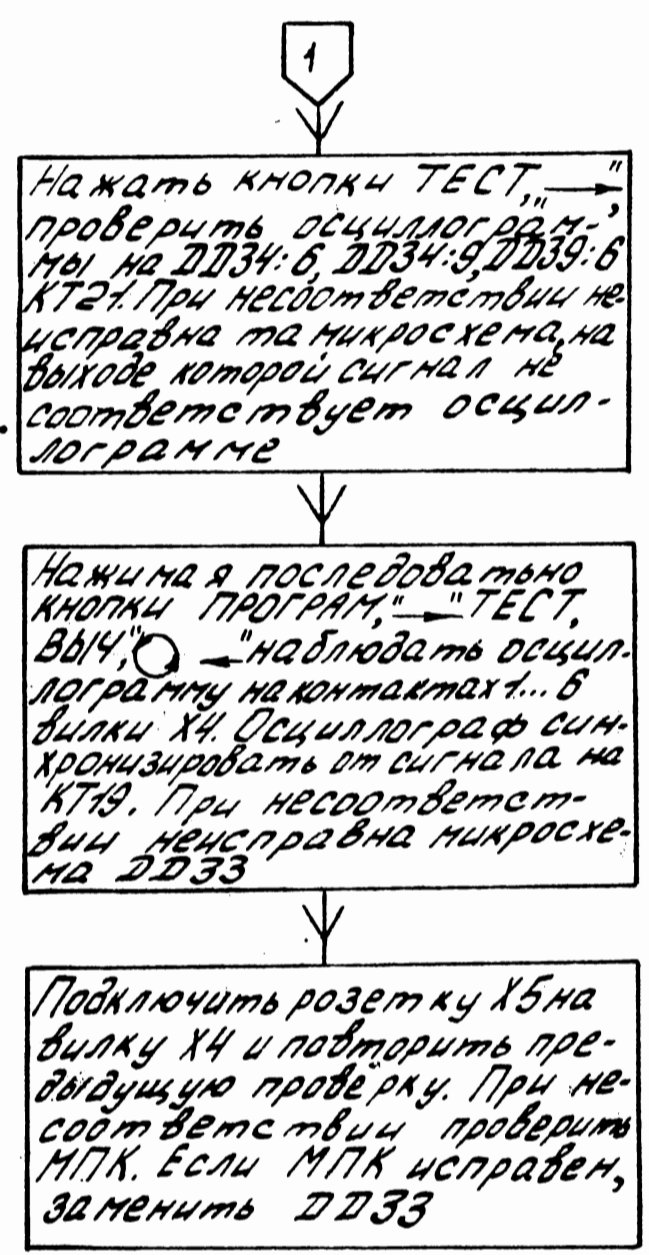 1
Нажать кнопки ТЕСТ, "→",
проверить осциллограм-
мы на DD34:6, DD34:9, DD39:6
КТ21. При несоответствии не-
исправна та микросхема, на
выходе которой сигнал не
соответствует осцил-
лограмме
Нажимая последовательно
кнопки ПРОГРАМ, "→" ТЕСТ,
ВЫЧ, "○ ←" наблюдать осцил-
лограмму на контактах 1...6
вилки Х4. Осциллограф син-
хронизировать от сигнала на
КТ19. При несоответст-
вии неисправна микросхе-
ма DD33
Подключить розетку Х5 на
вилку Х4 и повторить пре-
дыдущую проверку. При не-
соответствии проверить
МПК. Если МПК исправен,
заменить DD33